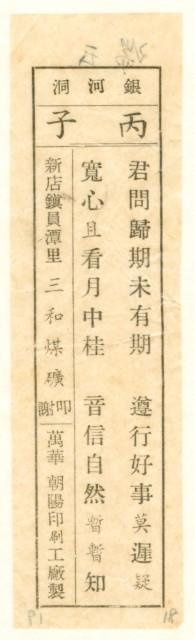 銀河洞
丙子
君問歸期未有期 遵行好事莫遲疑
寬心且看月中桂 音信自然暫暫知
新店鎮員潭里 三和煤礦 叩謝
萬華 朝陽印刷工廠製
18